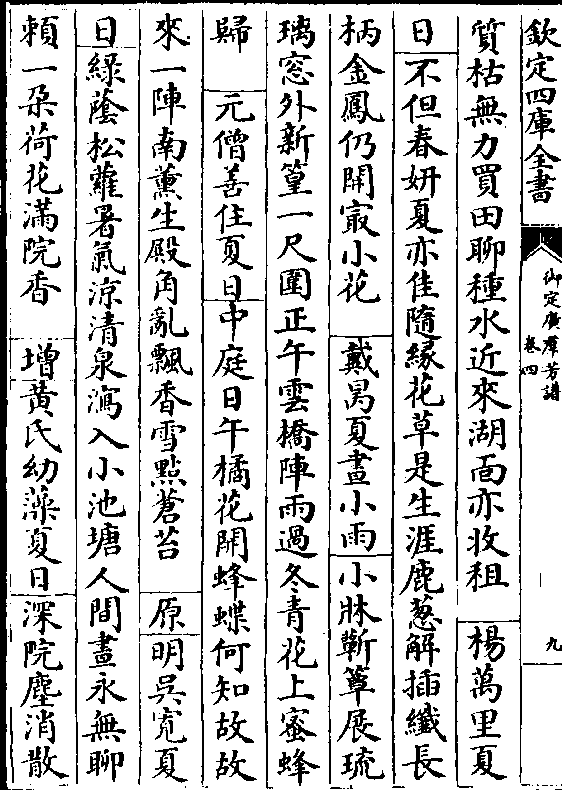 欽定四庫全書
御定廣羣芳譜
卷四
九
質枯無力買田聊種水近來湖面亦收租　楊萬里夏
日不但春妍夏亦佳隨緣花草是生涯鹿葱解插纖長
柄金鳳仍開㝡小花　戴昺夏晝小雨小牀蘄簟展琉
璃窓外新篁一尺圍正午雲橋陣雨過冬青花上蜜蜂
歸　元僧善住夏日中庭日午橘花開蜂蝶何知故故
來一陣南薰生殿角亂飄香雪點蒼苔　原明吳寛夏
日綠蔭松蘿暑氣涼清泉瀉入小池塘人間晝永無聊
頼一朶荷花滿院香　增黃氏幼藻夏日深院塵消散